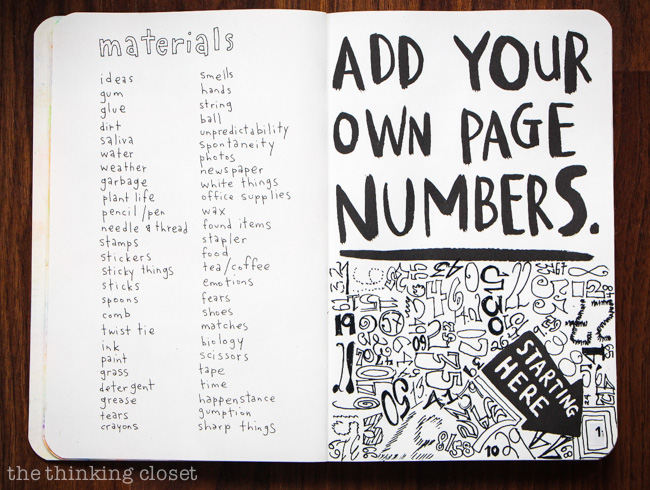 materials
ideas
gum
glue
dirt
saliva
water
weather
garbage
plant life
pencil/pen
needle & thread
stamps
stickers
sticky things
sticks
spoons
comb
twist tie
ink
paint
grass
detergent
grease
tears
crayons
smells
hands
string
ball
unpredictability
spontaneity
photos
newspaper
white things
office supplies
wax
found items
stapler
food
tea/coffee
emotions
fears
shoes
matches
biology
scissors
tape
time
happenstance
gumption
sharp things
ADD YOUR
OWN PAGE
NUMBERS.
19
50
10
STARTING
HERE
1
the thinking closet